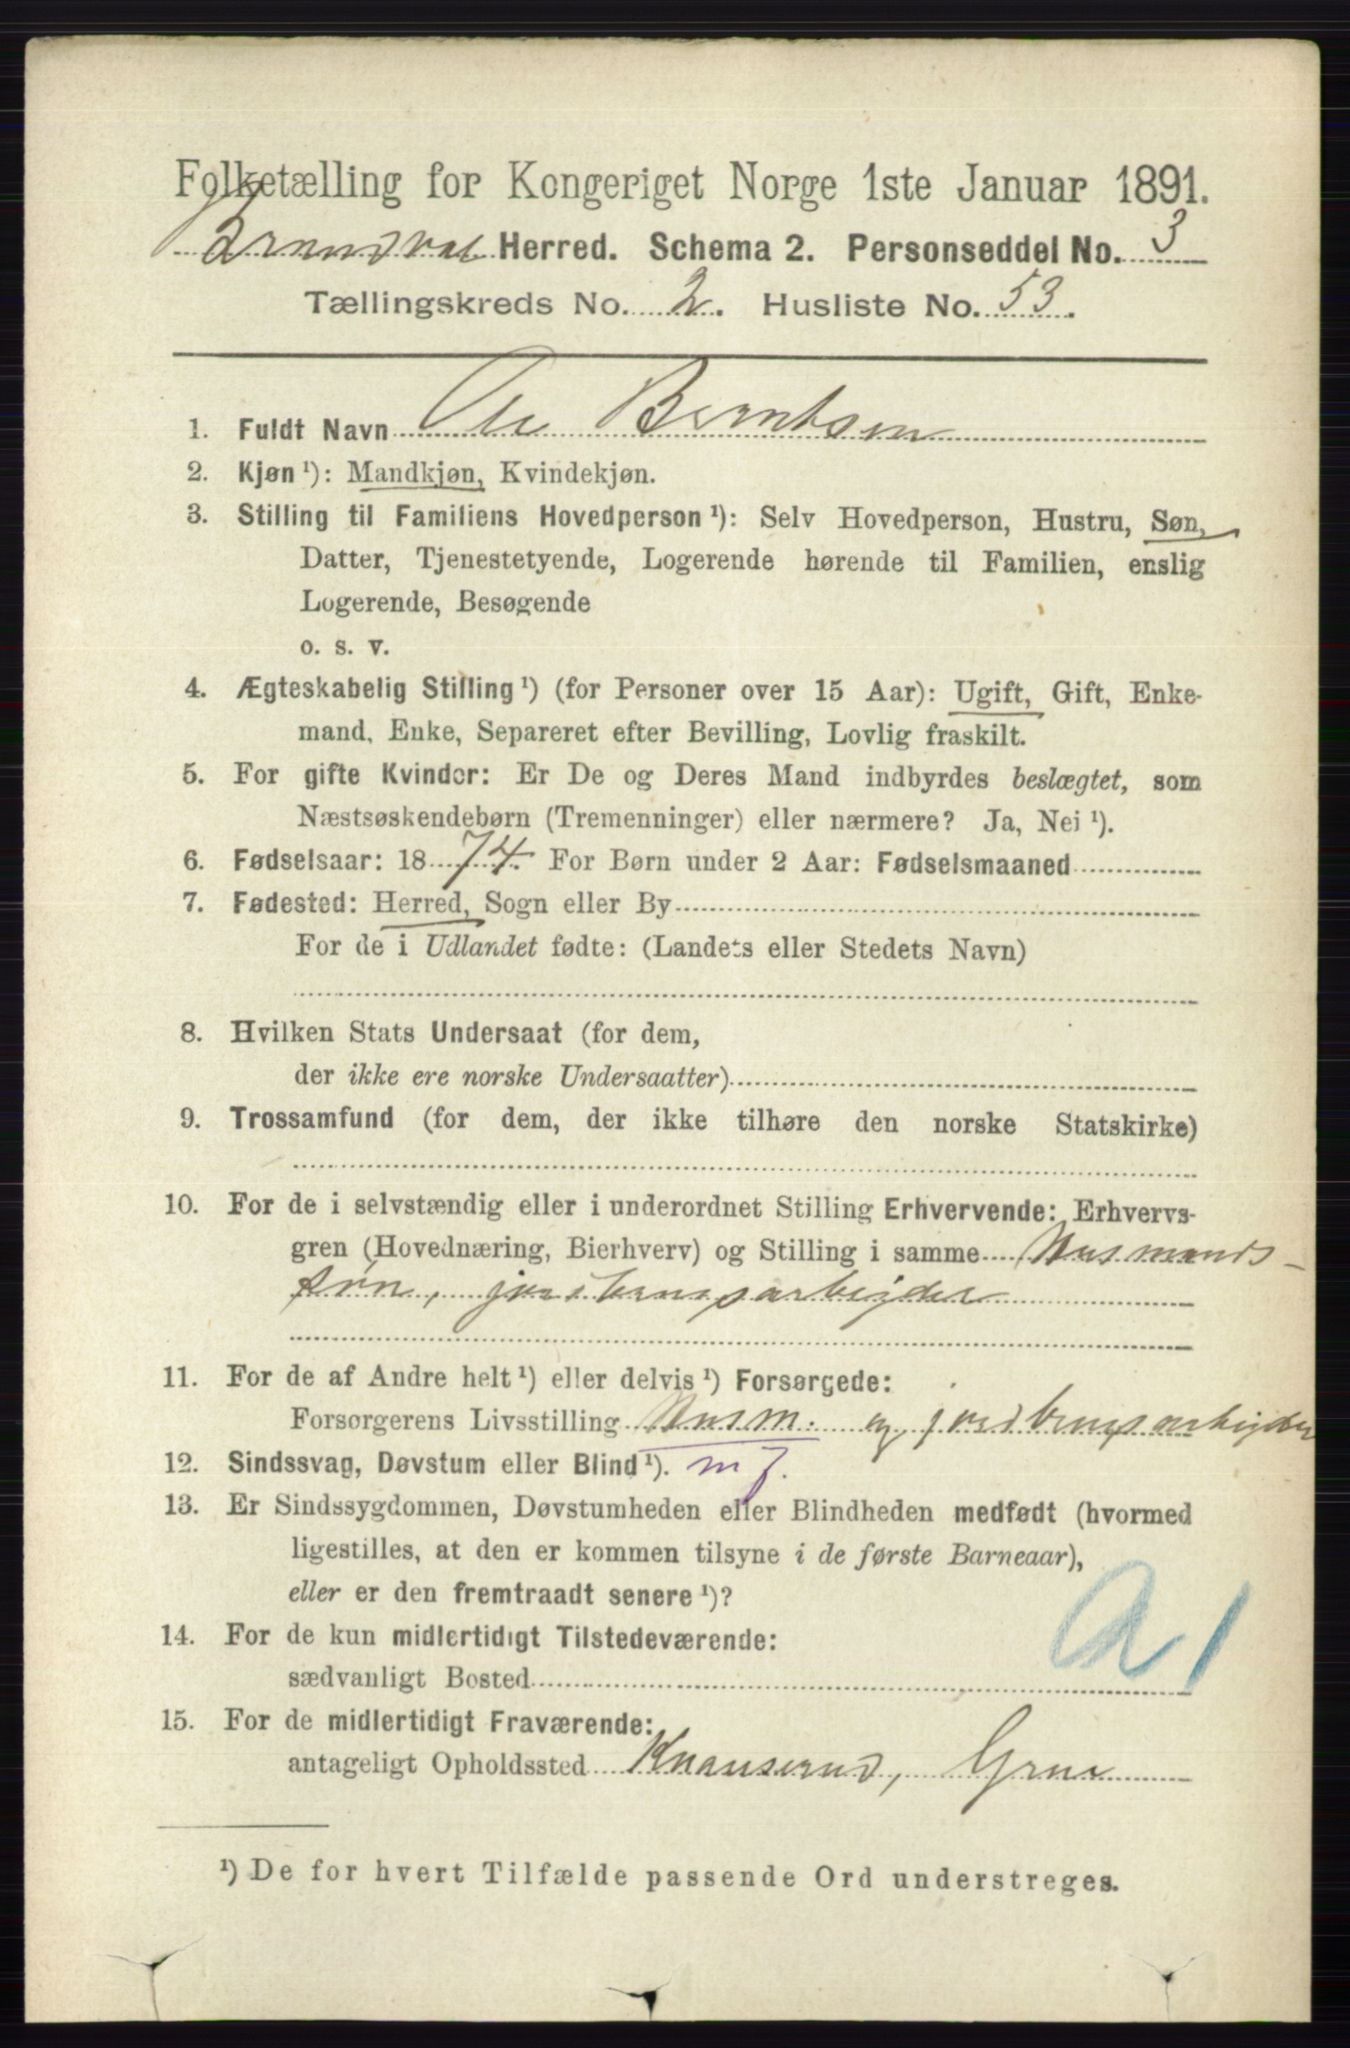 Folketælling for Kongeriget Norge 1ste Januar 1891.
Brandval Herred. Schema 2. Personseddel No. 3
Tællingskreds No. 2. Husliste No. 53.
1. Fuldt Navn Ole Berntsen
2. Kjøn ¹): Mandkjøn, Kvindekjøn.
3. Stilling til Familiens Hovedperson ¹): Selv Hovedperson, Hustru, Søn,
Datter, Tjenestetyende, Logerende hørende til Familien, enslig
Logerende, Besøgende
o. s. v.
4. Ægteskabelig Stilling ¹) (for Personer over 15 Aar): Ugift, Gift, Enke-
mand, Enke, Separeret efter Bevilling, Lovlig fraskilt.
5. For gifte Kvinder: Er De og Deres Mand indbyrdes beslægtet, som
Næstsøskendebørn (Tremenninger) eller nærmere? Ja, Nei ¹).
6. Fødselsaar: 1874. For Børn under 2 Aar: Fødselsmaaned
7. Fødested: Herred, Sogn eller By
For de i Udlandet fødte: (Landets eller Stedets Navn)
8. Hvilken Stats Undersaat (for dem,
der ikke ere norske Undersaatter)
9. Trossamfund (for dem, der ikke tilhøre den norske Statskirke)
10. For de i selvstændig eller i underordnet Stilling Erhvervende: Erhvervs-
gren (Hovednæring, Bierhverv) og Stilling i samme Husmands-
søn, jordbrugsarbejder
11. For de af Andre helt ¹) eller delvis ¹) Forsørgede:
Forsørgerens Livsstilling Husm. og jordbrugsarbejder
12. Sindssvag, Døvstum eller Blind ¹). mf.
13. Er Sindssygdommen, Døvstumheden eller Blindheden medfødt (hvormed
ligestilles, at den er kommen tilsyne i de første Barneaar),
eller er den fremtraadt senere ¹)?
14. For de kun midlertidigt Tilstedeværende:
sædvanligt Bosted
a 1
15. For de midlertidigt Fraværende:
antageligt Opholdssted Knauserud, Grue
¹) De for hvert Tilfælde passende Ord understreges.